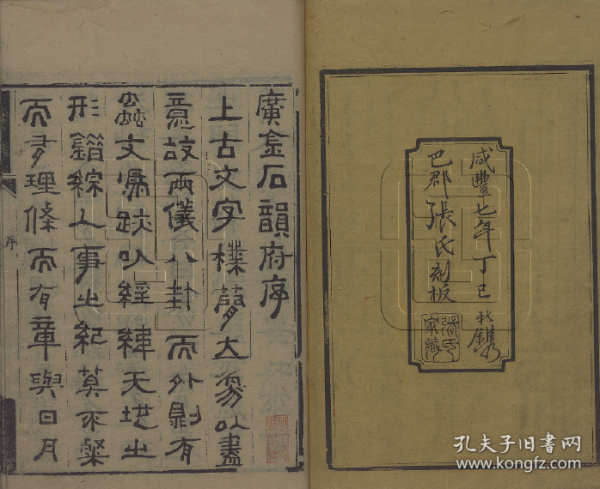 咸豐七年丁巳秋鐫
巴郡張氏刻板
張氏家藏
廣金石韻府序
上古文字樸
大易以盡
意故兩儀八卦而外則有
蟲文鳥跡以經緯天地之
形錯綜人事之紀莫不燦
而多理條而有章與日月
序
孔夫子旧书网
www.kongfz.com